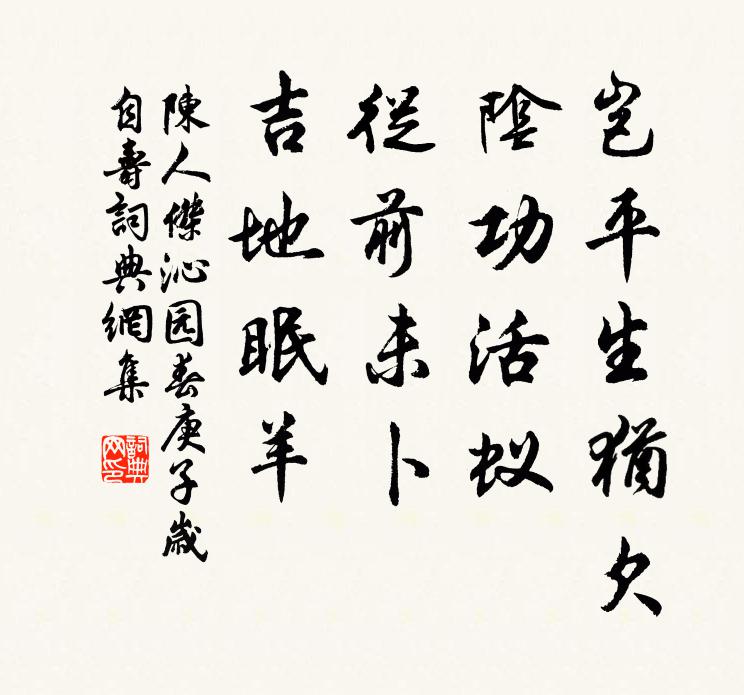 岂平生猶欠
陰功活蚁
從前未卜
吉地眠羊
陳人傑沁园春庚子歲
自壽詞典網集
詞典网印